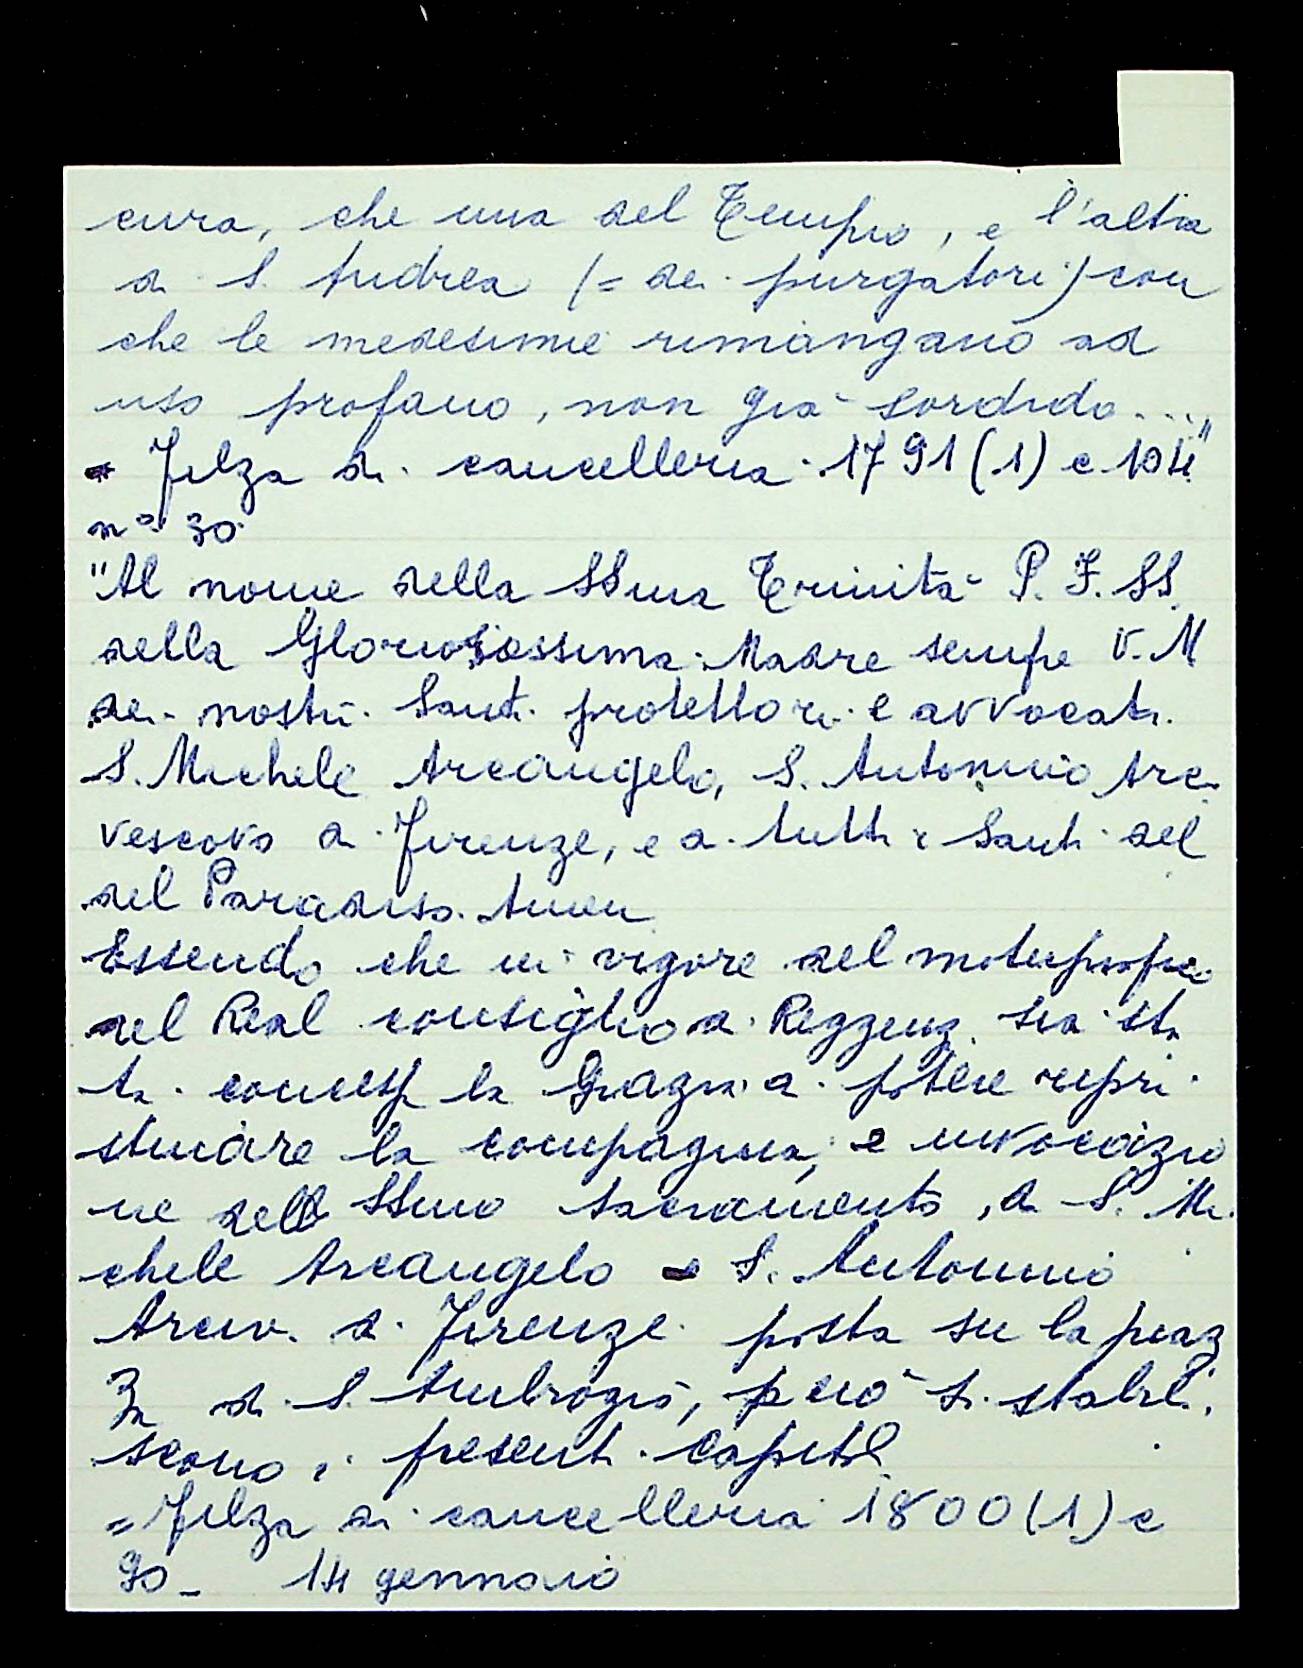 cura, che una del Tempio, e l'altra
di S. Andrea (= dei purgatori) con
che le medesime rimangano ad
uso profano, non già sordido...."
= Filza di cancelleria 1791 (1) c 104
n° 30
"Al nome della SSma Trinità P. F. SS.
della Gloriosissima Madre sempe V. M
dei nostri Santi protettori e avvocati
S. Michele Arcangelo, S. Antonino Arci
vescovo di Firenze, e di tutti i Santi del
del Paradiso. Amen
Essendo che in vigore del motuproprio
del Real consiglio di Reggenz. sia sta
ta concess la Grazia di potere ripri
stinare la compagnia, e invocazio
ne dell SSmo Sacramento, di S. Mi
chele Arcangelo e S. Antonino
Arciv. di Firenze posta su la piaz
za di S. Ambrogio, perciò si stabili
scono i presenti Capitol
= Filza di cancelleria 1800 (1) c
90 - 14 gennaio